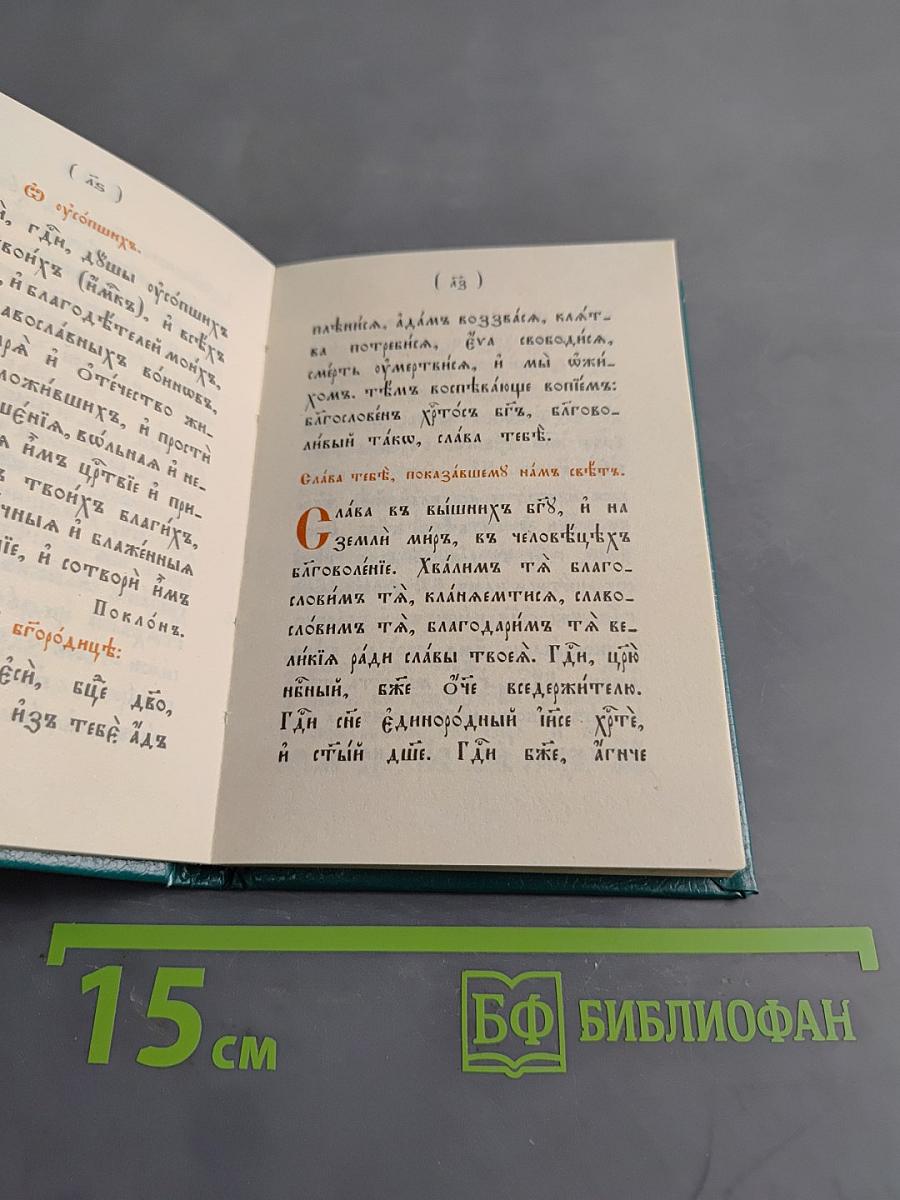 ( л҃ѕ )
Ѽ оу҆со́пшихъ.
гдⷭ҇и, дꙋ́шы оу҆со́пшихъ
твои́хъ (и҆́мкъ), и҆ всѣ́хъ
и҆ благодѣ́телей мои́хъ,
во́инѡвъ,
и҆ ѻ҆те́чество жи-
и҆ простѝ
вѡ́льнаѧ и҆ не-
и҆̀мъ црⷭ҇твїе и҆ при-
твои́хъ благи́хъ,
и҆ блаже́нныѧ
и҆ сотворѝ и҆̀мъ
Покло́нъ.
бг҃оро́дицѣ:
є҆сѝ, бцⷣе дв҃о,
и҆зъ тебє̀ а҆́дъ
( л҃з )
плѣни́сѧ, а҆да́мъ воззва́сѧ, клѧ́т-
ва потреби́сѧ, є҆́ѵа свободи́сѧ,
сме́рть оу҆мертви́сѧ, и҆ мы̀ ѡ҆жи-
хомъ. тѣ́мъ воспѣва́юще вопїе́мъ:
благослове́нъ хрⷭ҇то́съ бг҃ъ, бл҃гово-
ли́вый та́кѡ, сла́ва тебѣ̀.
Сла́ва тебѣ̀, показа́вшемꙋ на́мъ свѣ́тъ.
Сла́ва въ вы́шнихъ бг҃ꙋ, и҆ на
землѝ ми́ръ, въ человѣ́цѣхъ
бл҃говоле́нїе. Хва́лимъ тѧ̀ благо-
слови́мъ тѧ̀, кла́нѧемтисѧ, славо-
сло́вимъ тѧ̀, благодари́мъ тѧ̀ ве-
ли́кїѧ ра́ди сла́вы твоеѧ̀. Гдⷭ҇и, цр҃ю̀
нбⷭ҇ный, бж҃е ѻ҆́ч҃е вседержи́телю.
Гдⷭ҇и сн҃е є҆диноро́дный і҆и҃се хрⷭ҇тѐ,
и҆ ст҃ы́й дш҃е. Гдⷭ҇и бж҃е, а҆́гнче
15 см
БФ БИБЛИОФАН